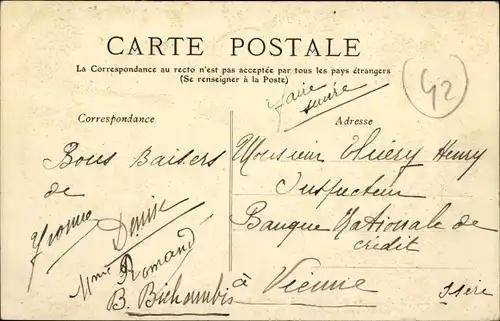 CARTE POSTALE
La Correspondance au recto n'est pas acceptée par tous les pays étrangers
(Se renseigner à la Poste)
faire suivre
42
Correspondance
Adresse
Bons Baisers
de
Yvonne
Denise
Mme Romand
B. Bichambis
Monsieur Thiéry Henry
Inspecteur
Banque Nationale de
crédit
à Vienne
Isère